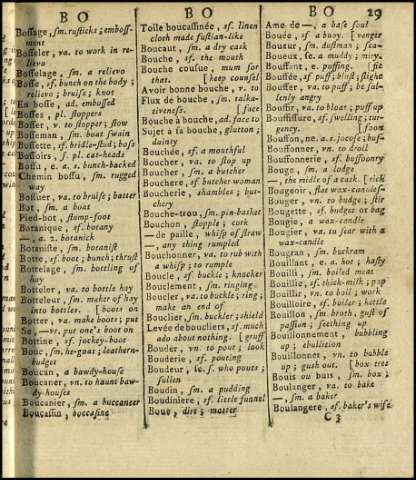 B O
Bossage, sm. rusticks; emboss-
ment
Bosseler, va. to work in re-
lievo
Bosselage, sm. a relievo
Bosse, sf. bunch on the body;
relievo; bruise; knot
En bosse, ad. embossed
Bosses, pl. stoppers
Bosser, v. to stopper; stow
Bosseman, sm. boat swain
Bossette, sf. bridle-stud; boss
Bossoirs, s. pl. cat-heads
Bossu, e. a. s. bunch-backed
Chemin bossu, sm. rugged
way
Bossuer, va. to bruise; batter
Bot, sm. a boat
Pied-bot, stump-foot
Botanique, sf. botany
— a. 2. botanick
Botaniste, sm. botanist
Botte, sf. boot; bunch; thrust
Bottelage, sm. bottling of
hay
Botteler, va. to bottle hay
Botteleur, sm. maker of hay
into bottles. [boots on
Botter, va. make boots; put
Se, — vr. put one's boot on
Bottine, sf. jockey-boot
Bouc, sm. he-goat; leathern-
budget
Boucan, a bawdy-house
Boucaner, vn. to haunt baw-
dy-houses
Boucanier, sm. a buccaneer
Boucassin, boccasine
B O
Toile boucassinée, sf. linen
cloth made fustian-like
Boucaut, sm. a dry cask
Bouche, sf. the mouth
Bouche cousue, mum for
that. [keep counsel
Avoir bonne bouche, v. to
Flux de bouche, sm. talka-
tiveness. [face
Bouche à bouche, ad. face to
Sujet à sa bouche, glutton;
dainty
Bouchée, sf. a mouthful
Boucher, va. to stop up
Boucher, sm. a butcher
Bouchere, sf. butcher woman
Boucherie, shambles; but-
chery
Bouche-trou, sm. pin-basket
Bouchon, stopple; cork
— de paille, whisp of straw
—, any thing rumpled
Bouchonner, va. to rub with
a whisp; to rumple
Boucle, sf. buckle; knocker
Bouclement, sm. ringing
Boucler, va. to buckle; ring;
make an end of
Bouclier, sm. buckler; shield
Levée de boucliers, sf. much
ado about nothing. [gruff
Bouder, vn. to pout; look
Bouderie, sf. pouting
Boudeur, se. s. who pouts;
sullen
Boudin, sm. a pudding
Boudiniere, sf. little funnel
Boue, dirt; matter
B O 29
Ame de —, a base soul
Bouée, sf. a buoy. [venger
Boueur, sm. dustman; sca-
Boueux, se. a. muddy; miry.
Bouffant, e. a. puffing.
Bouffée, sf. puff; blast;
Bouffer, va. to puff; be sul-
lenly angry
Bouffir, va. to bloat; puff up
Bouffissure, sf. swelling; tur-
gency.
Bouffon, ne. a. s. jocose; buf-
Bouffonner, vn. to droll
Bouffonnerie, sf. buffoonry
Bouge, sm. a lodge
—, the middle of a cask. [rick
Bougeoir, flat wax-candles-
Bouger, vn. to budge; stir
Bougette, sf. budget or bag
Bougie, a wax-candle
Bougier, va. to sear with a
wax-candle
Bougran, sm. buckram
Bouillant, e. a. hot; hasty
Bouilli, sm. boiled meat
Bouillie, sf. thick-milk; pap
Bouillir, vn. to boil; work
Bouilloire, sf. boiler; kettle
Bouillon, sm. broth; gust of
passion; seething up
Bouillonnement, bubbling
up; ebullition
Bouillonner, vn. to bubble
up; gush out. [box tree
Bouis ou buis, sm. box;
Boulanger, va. to bake
—, sm. a baker
Boulangere, sf. baker's wife
C 3